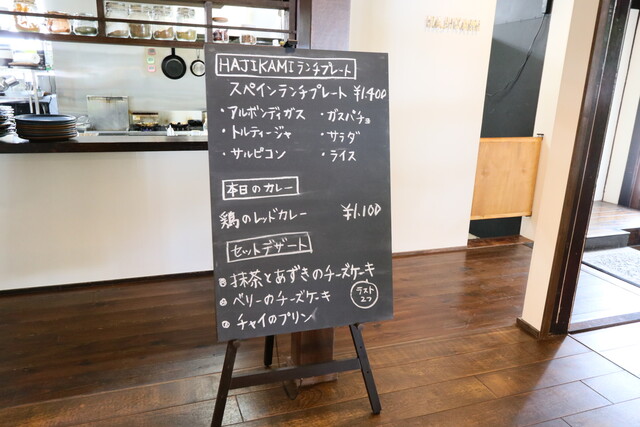 HAJIKAMIランチプレート
スペインランチプレート ¥1.400
・アルボンディガス ・ガスパチョ
・トルティージャ ・サラダ
・サルピコン ・ライス
本日のカレー
鶏のレッドカレー ¥1.100
セットデザート
抹茶とあずきのチーズケーキ
ベリーのチーズケーキ ラスト2つ
チャイのプリン
HAJIKAMI